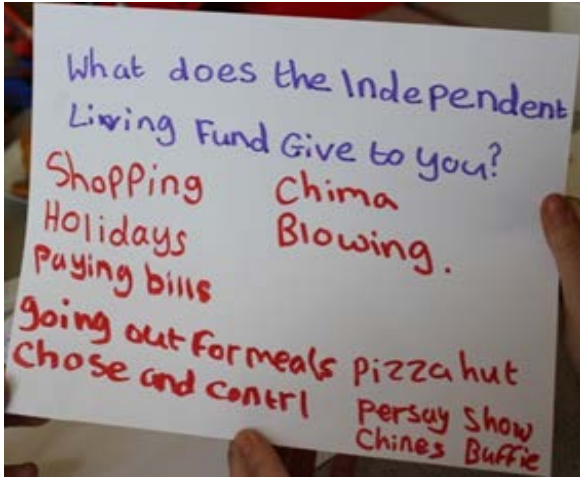 What does the Independent
Living Fund Give to you?
Shopping
Holidays
Paying bills
Chima
Blowing.
going out for meals pizza hut
chose and contrl
Persay Show
Chines Buffie